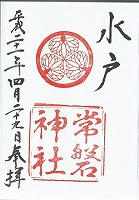 水戸
常磐
神社
平成二十一年四月二十九日奉拝